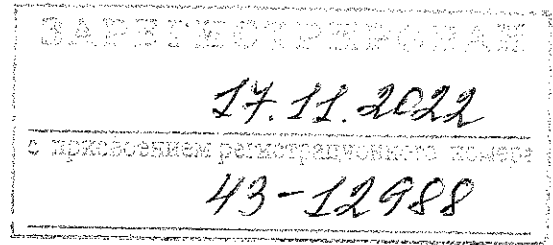 ЗАРЕГИСТРИРОВАН
17.11.2022
с присвоением регистрационного номера
43-12988